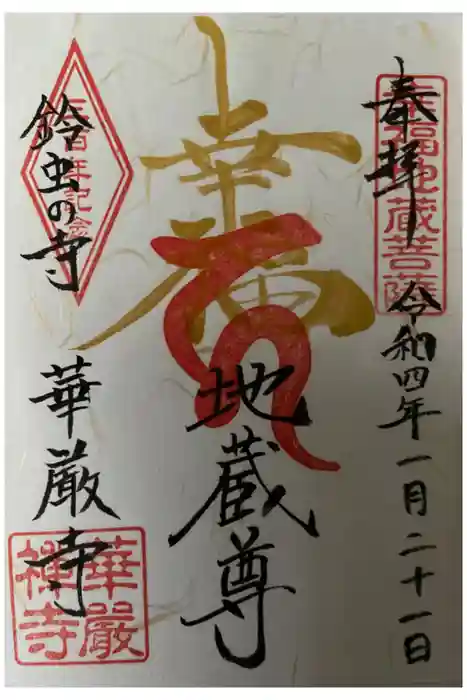 奉拝
幸福地蔵菩薩
令和四年一月二十一日
幸福
地蔵尊
鈴虫の寺
三百年記念
華厳寺
華嚴
禅寺